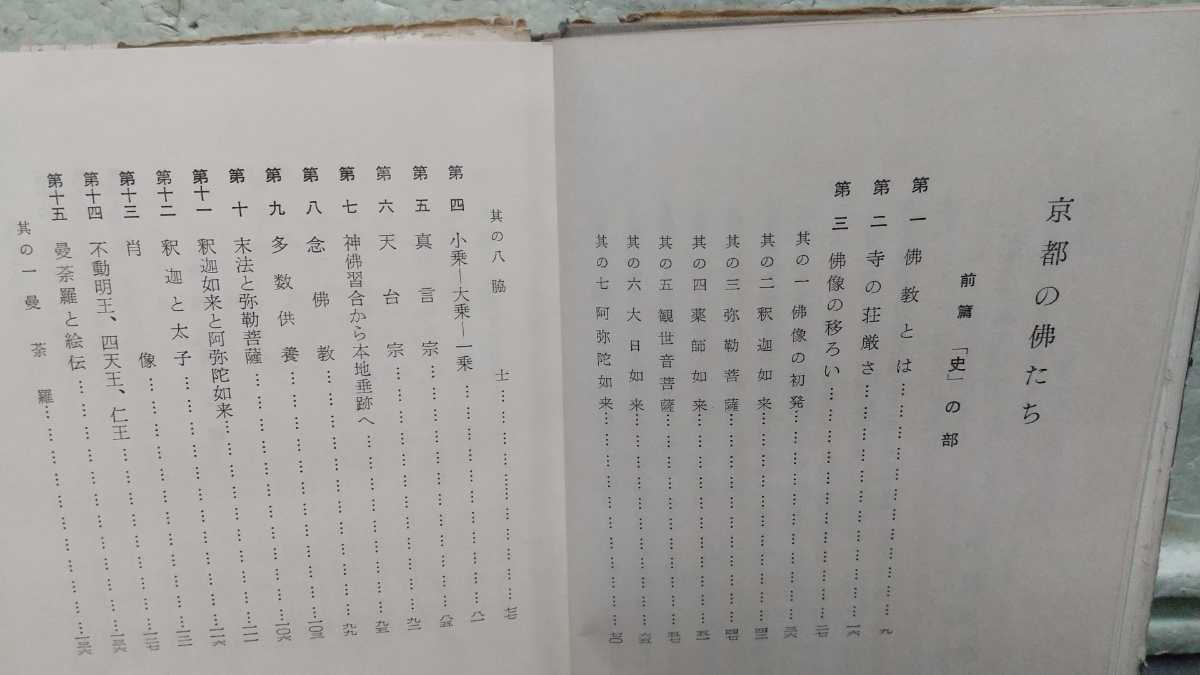 京都の佛たち
前篇 「史」の部
第一 佛教とは……九
第二 寺の荘厳さ……一六
第三 佛像の移ろい……二七
其の一 佛像の初発……三六
其の二 釈迦如来……四三
其の三 弥勒菩薩……四七
其の四 薬師如来……五二
其の五 観世音菩薩……五七
其の六 大日如来……六五
其の七 阿弥陀如来……七〇
其の八 脇士……七七
第四 小乗―大乗―一乗……八一
第五 真言宗……八五
第六 天台宗……九二
第七 神佛習合から本地垂跡へ……九九
第八 念佛教……一〇三
第九 多数供養……一〇六
第十 末法と弥勒菩薩……一一一
第十一 釈迦如来と阿弥陀如来……一一六
第十二 釈迦と太子
第十三 肖像……一二七
第十四 不動明王、四天王、仁王……一三六
第十五 曼荼羅と絵伝
其の一 曼荼羅